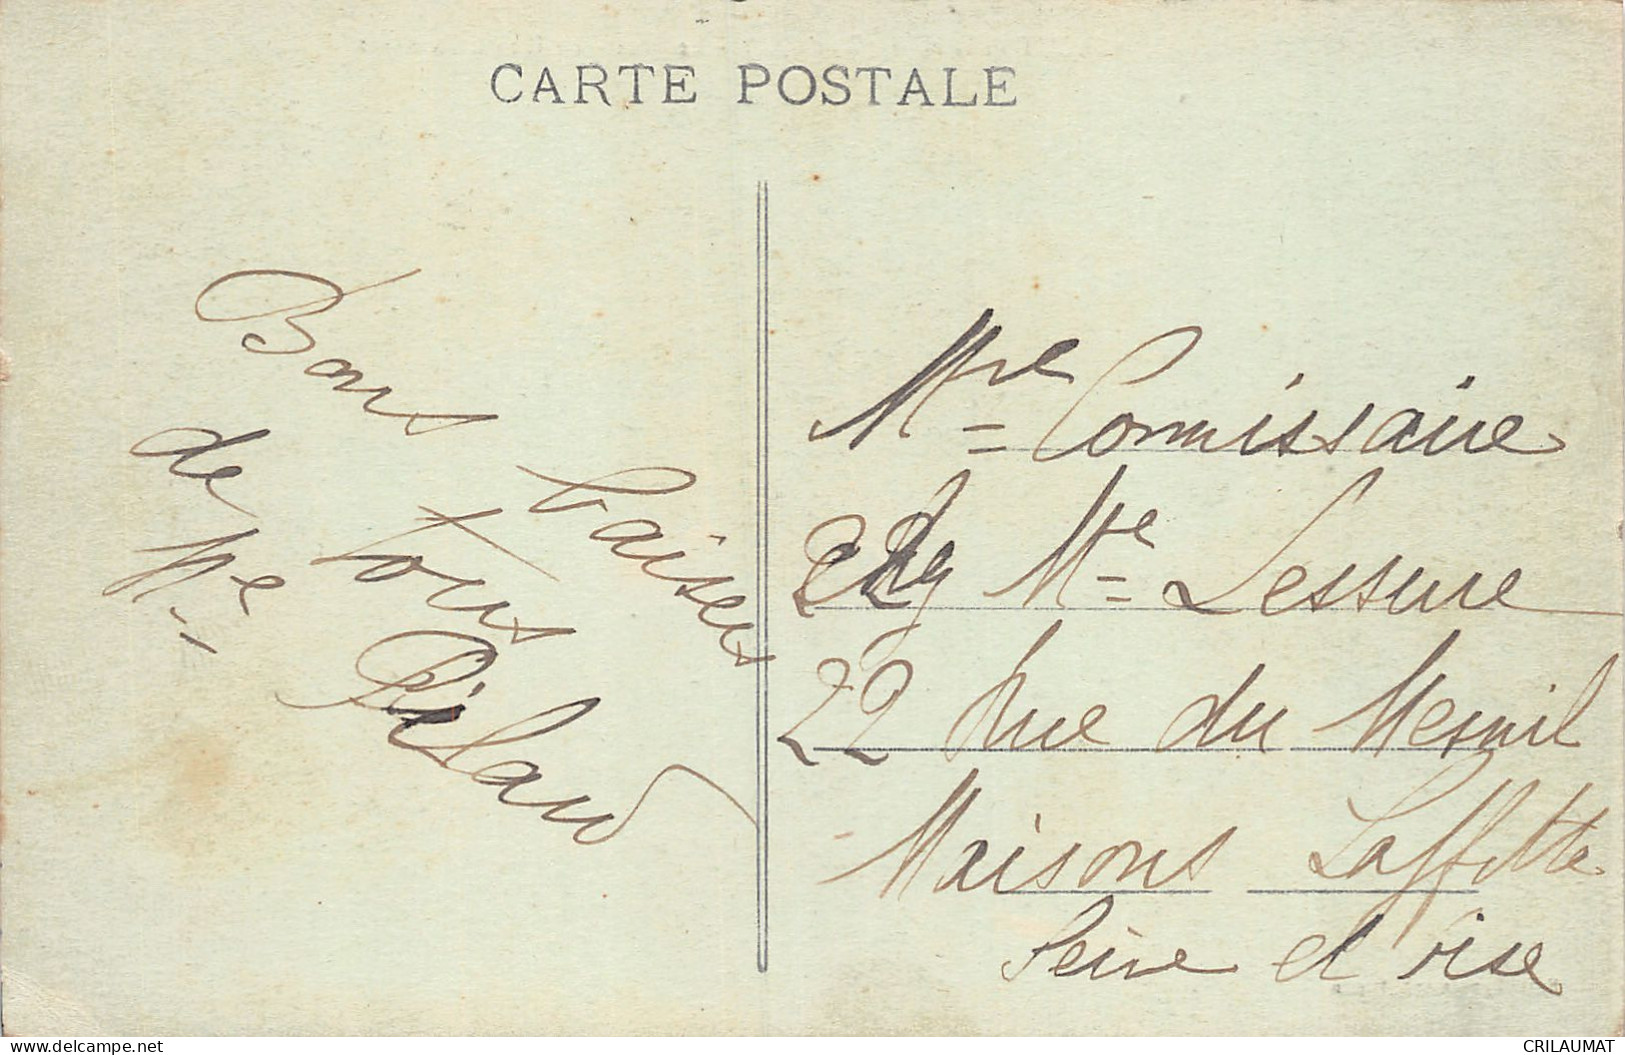 CARTE POSTALE
Bons baisers
de tous
Pilaud
Mme Comissaire
chez Mme Lessure
22 Rue du Mesnil
Maisons Laffitte
Seine et oise
www.delcampe.net
CRILAUMAT